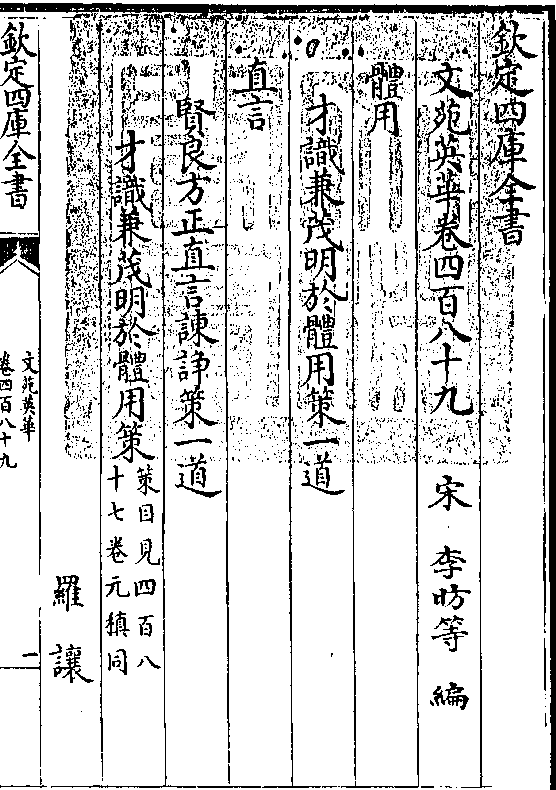 欽定四庫全書
文苑英華卷四百八十九
宋 李昉等 編
體用
才識兼茂明於體用策一道
直言
賢良方正直言諫諍策一道
才識兼茂明於體用策
策目見四百八
十七卷元稹同
羅讓
欽定四庫全書
文苑英華
卷四百八十九
一